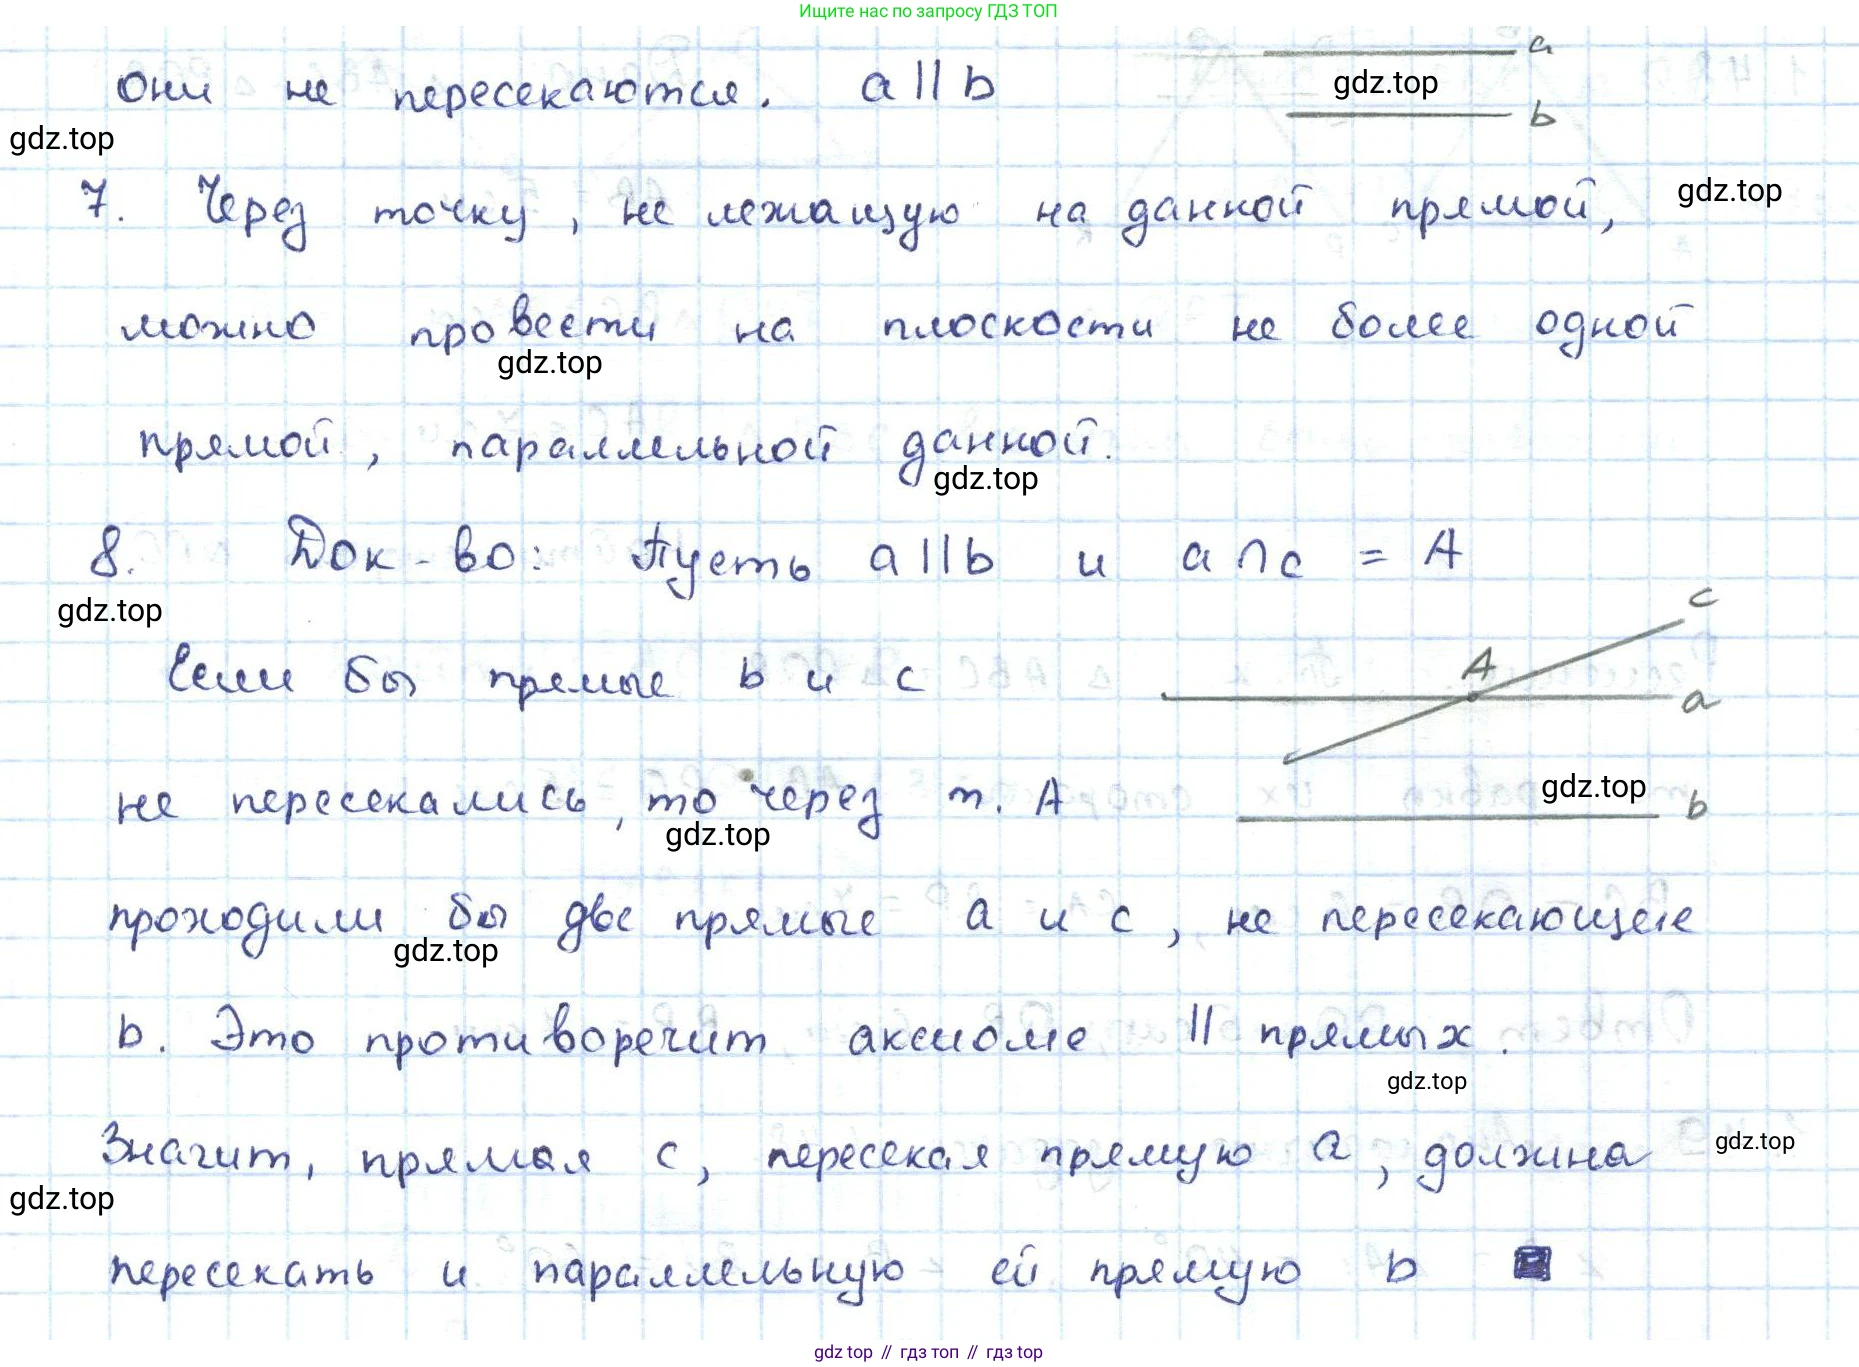 Ищите нас по запросу ГДЗ ТОП
они не пересекаются. a || b
a
gdz.top
b
gdz.top
7. Через точку, не лежащую на данной прямой,
gdz.top
можно провести на плоскости не более одной
gdz.top
прямой, параллельной данной.
gdz.top
8. Док-во: Пусть a || b и a ∩ c = A
gdz.top
c
Если бы прямые b и c
A
a
не пересекались, то через т. A
gdz.top
b
gdz.top
проходили бы две прямые a и c, не пересекающие
gdz.top
b. Это противоречит аксиоме || прямых.
gdz.top
Значит, прямая c, пересекая прямую a, должна
gdz.top
gdz.top
пересекать и параллельную ей прямую b
gdz top // гдз топ // gdz top